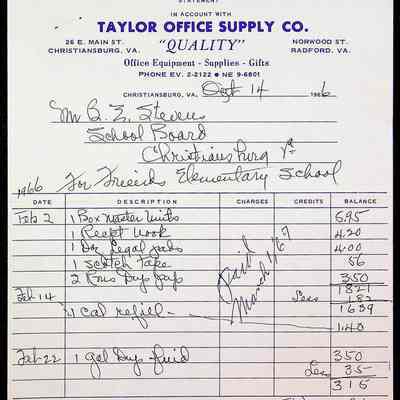 STATEMENT
IN ACCOUNT WITH
TAYLOR OFFICE SUPPLY CO.
26 E. MAIN ST. "QUALITY" NORWOOD ST.
CHRISTIANSBURG, VA. RADFORD, VA.
Office Equipment - Supplies - Gifts
PHONE EV. 2-2122 • NE 9-6801
CHRISTIANSBURG, VA. 14 1966
Mr Q. Z. Stevens
School Board
Christiansburg Va
1966 For Friends Elementary School
DATE DESCRIPTION CHARGES CREDITS BALANCE
Feb 2 1 Box Master Units 6.95
1 Recpt Book 4.20
1 Doz Legal Pads 4.00
1 Scotch Tape 56
2 Rms Dup Pap 350
1821
Feb 14 Less 182
1639
1 Cal refill 1.40
Feb 22 1 gal Dup fluid 350
Less 35
315
Paid March 1/67